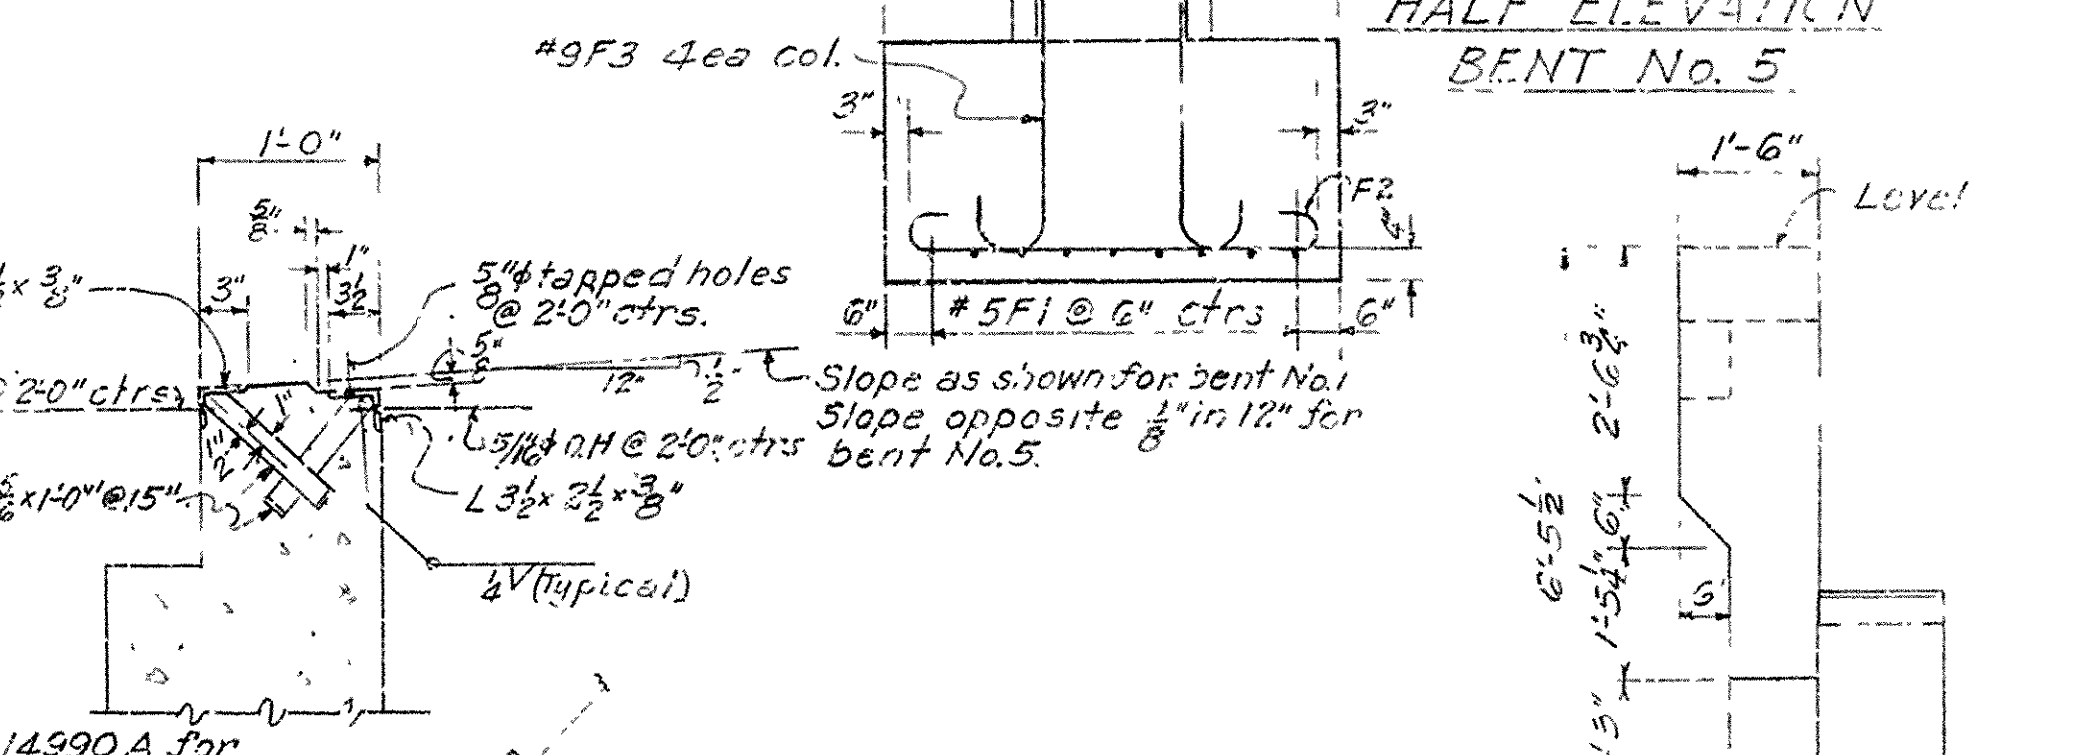 HALF ELEVATION
BENT No. 5
#9F3 4ea col.
3"
3"
F2
6"
#5F1 @ 6" ctrs
6"
1'-0"
5/8"
1"
3"
3 1/2
x 3/8"
5/8"φ tapped holes
@ 2'-0" ctrs.
5/8"
12"
1/2"
Slope as shown for bent No.1
Slope opposite 1/8" in 12" for
bent No.5.
@ 2'-0" ctrs
1"
1"
2"
5/16 φ D.H @ 2'-0" ctrs
x 1'-0" @ 15"
L 3 1/2 x 2 1/2 x 3/8"
1/4 V (Typical)
14990 A for
1'-6"
Level
2'-6 3/4"
6"
6'-5 1/2"
1'-5 1/4"
3"